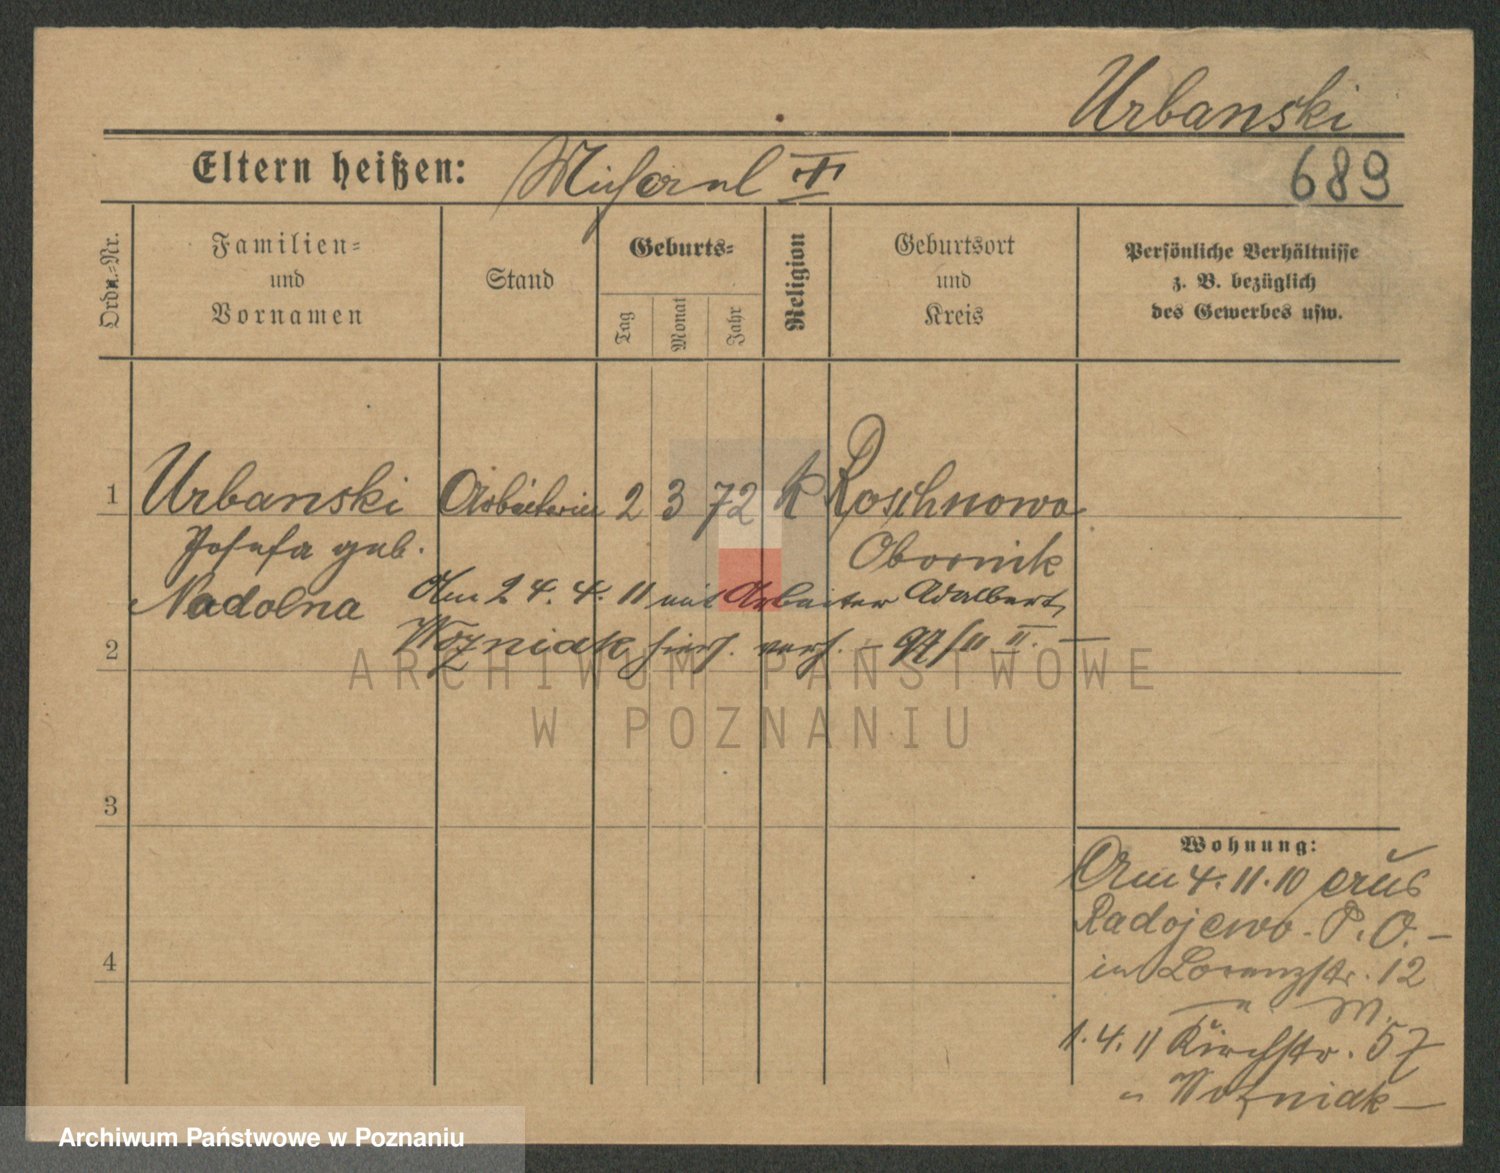 Urbanski
Eltern heißen: Michael I
689
Ordn.-Nr.
Familien-
und
Vornamen
Stand
Geburts-
Tag
Monat
Jahr
Religion
Geburtsort
und
Kreis
Persönliche Verhältnisse
z. B. bezüglich
des Gewerbes usw.
1 Urbanski Arbeiterin 2 3 72 k Roschnowo
Josefa geb. Obornik
Nadolna Am 24. 4. 11 mit Arbeiter Adalbert
2 Wozniak hier verh. – 97/11 II. –
ARCHIWUM PAŃSTWOWE
W POZNANIU
3
4
Wohnung:
Am 4. 11. 10 aus
Radojewo. P. O. –
in Lorenzstr. 12
1. 4. 11 Kirchstr. 57
Wozniak –
Archiwum Państwowe w Poznaniu